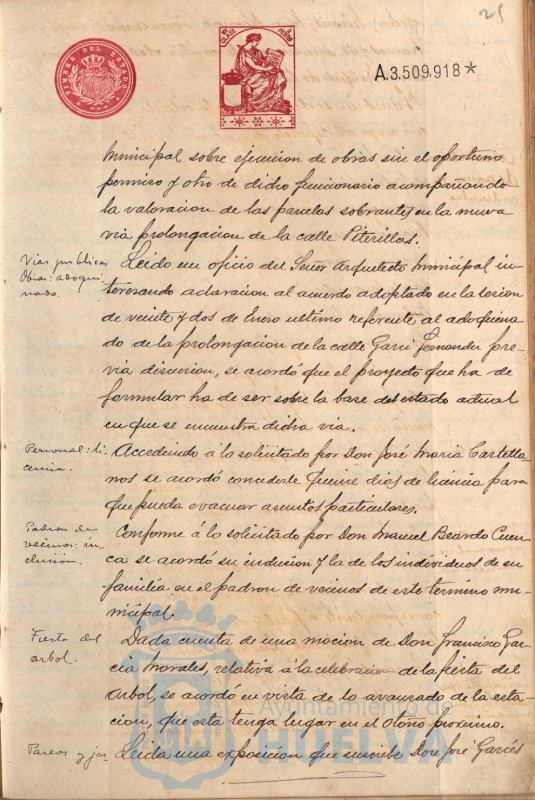 25
TIMBRE DEL ESTADO
A.3.509,918*
municipal sobre ejecucion de obras sin el oportuno
permiso y otro de dicho funcionario acompañando
la valoracion de las parcelas sobrantes en la nueva
via prolongacion de la calle Piterillas.
Vias publicas
Obras: adoqui
nado.
Leido un oficio del Señor Arquitecto municipal in-
teresando aclaracion al acuerdo adoptado en la sesion
de veinte y dos de Enero ultimo referente al adoquina
do de la prolongacion de la calle Garci Fernandez pre-
via discusion, se acordó que el proyecto que ha de
formular ha de ser sobre la base del estado actual
en que se encuentra dicha via.
Personal: li
cencia.
Accediendo á lo solicitado por Don José Maria Castella
nos se acordó concederle quince dias de licencia para
que pueda evacuar asuntos particulares.
Padron de
vecinos: in
clusion.
Conforme á lo solicitado por Don Manuel Beardo Cuen
ca se acordó su inclusion y la de los individuos de su
familia en el padron de vecinos de este termino mu-
nicipal.
Fiesta del
arbol.
Dada cuenta de una mocion de Don Francisco Gar
cia Morales, relativa á la celebracion de la fiesta del
Arbol, se acordó en vista de lo avanzado de la esta
cion, que esta tenga lugar en el otoño proximo.
Paseos y jar
Leida una exposicion que suscribe Don José Garcés
Ayuntamiento de
HUELVA